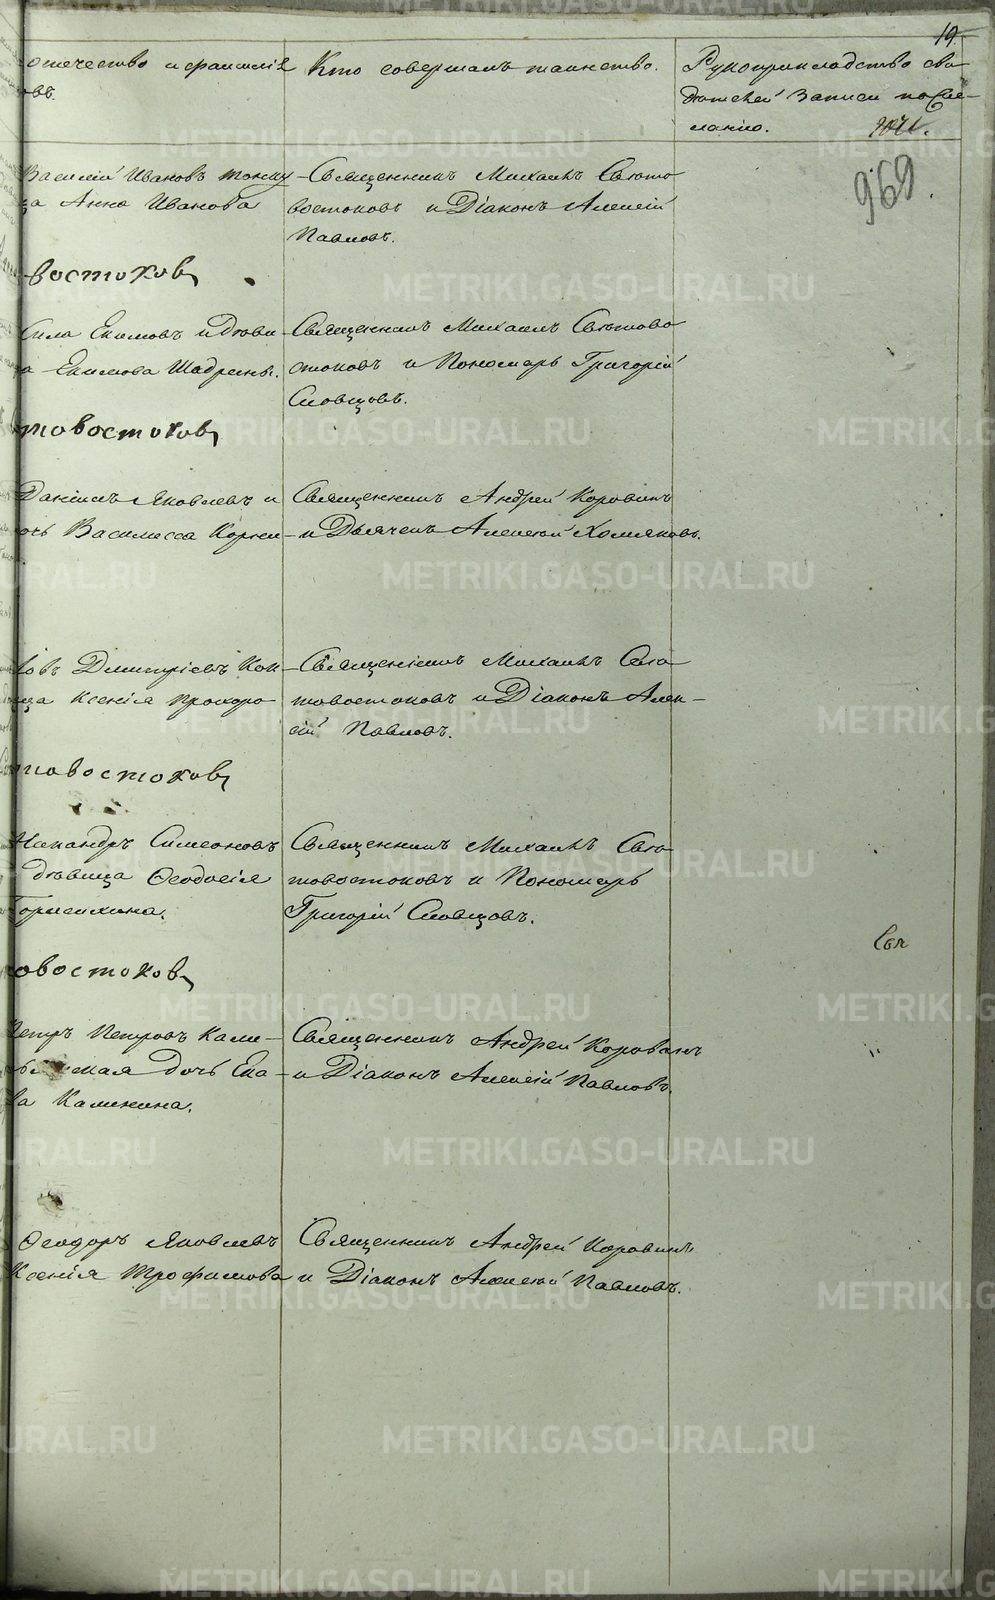 19.
отечество и фамилiя
овъ.
Кто совершалъ таинство.
Рукоприкладство сви
дѣтелей записи по же-
ланiю.
969.
Василiй Ивановъ
ца Анна Иванова
Священникъ Михаилъ Свято
востоковъ и Дiаконъ Алексiй
Павловъ.
востоковъ
Сила Екимовъ и дѣви
а Екимова Шадрины.
Священникъ Михаилъ Святово
стоковъ и Пономарь Григорiй
Словцовъ.
товостоковъ
Данiилъ Яковлевъ и
очь Василисса
Священникъ Андрей Коровинъ
и Дьячекъ Алексѣй Хомяковъ.
овъ Дмитрiевъ
ца Ксенiя Прохоро
Священникъ Михаилъ Свя
товостоковъ и Дiаконъ Алек-
сiй Павловъ.
товостоковъ
Никандръ Симеоновъ
дѣвица Ѳеодосiя
Священникъ Михаилъ Свя
товостоковъ и Пономарь
Григорiй Словцовъ.
овостоковъ
Петръ Петровъ Кали-
дочь Ека
ва Калинина.
Священникъ Андрей Коровинъ
и Дiаконъ Алексiй Павловъ.
Ѳеодоръ Яковлевъ
Ксенiя Трофимова
Священникъ Андрей Коровинъ
и Дiаконъ Алексѣй Павловъ.
METRIKI.GASO-URAL.RU